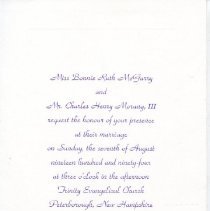 Miss Bonnie Ruth McGurry
and
Mr. Charles Henry III
request the honour of your presence
at their marriage
on Sunday, the seventh of August
nineteen hundred and ninety-four
at three o'clock in the afternoon
Trinity Evangelical Church
Peterborough, New Hampshire